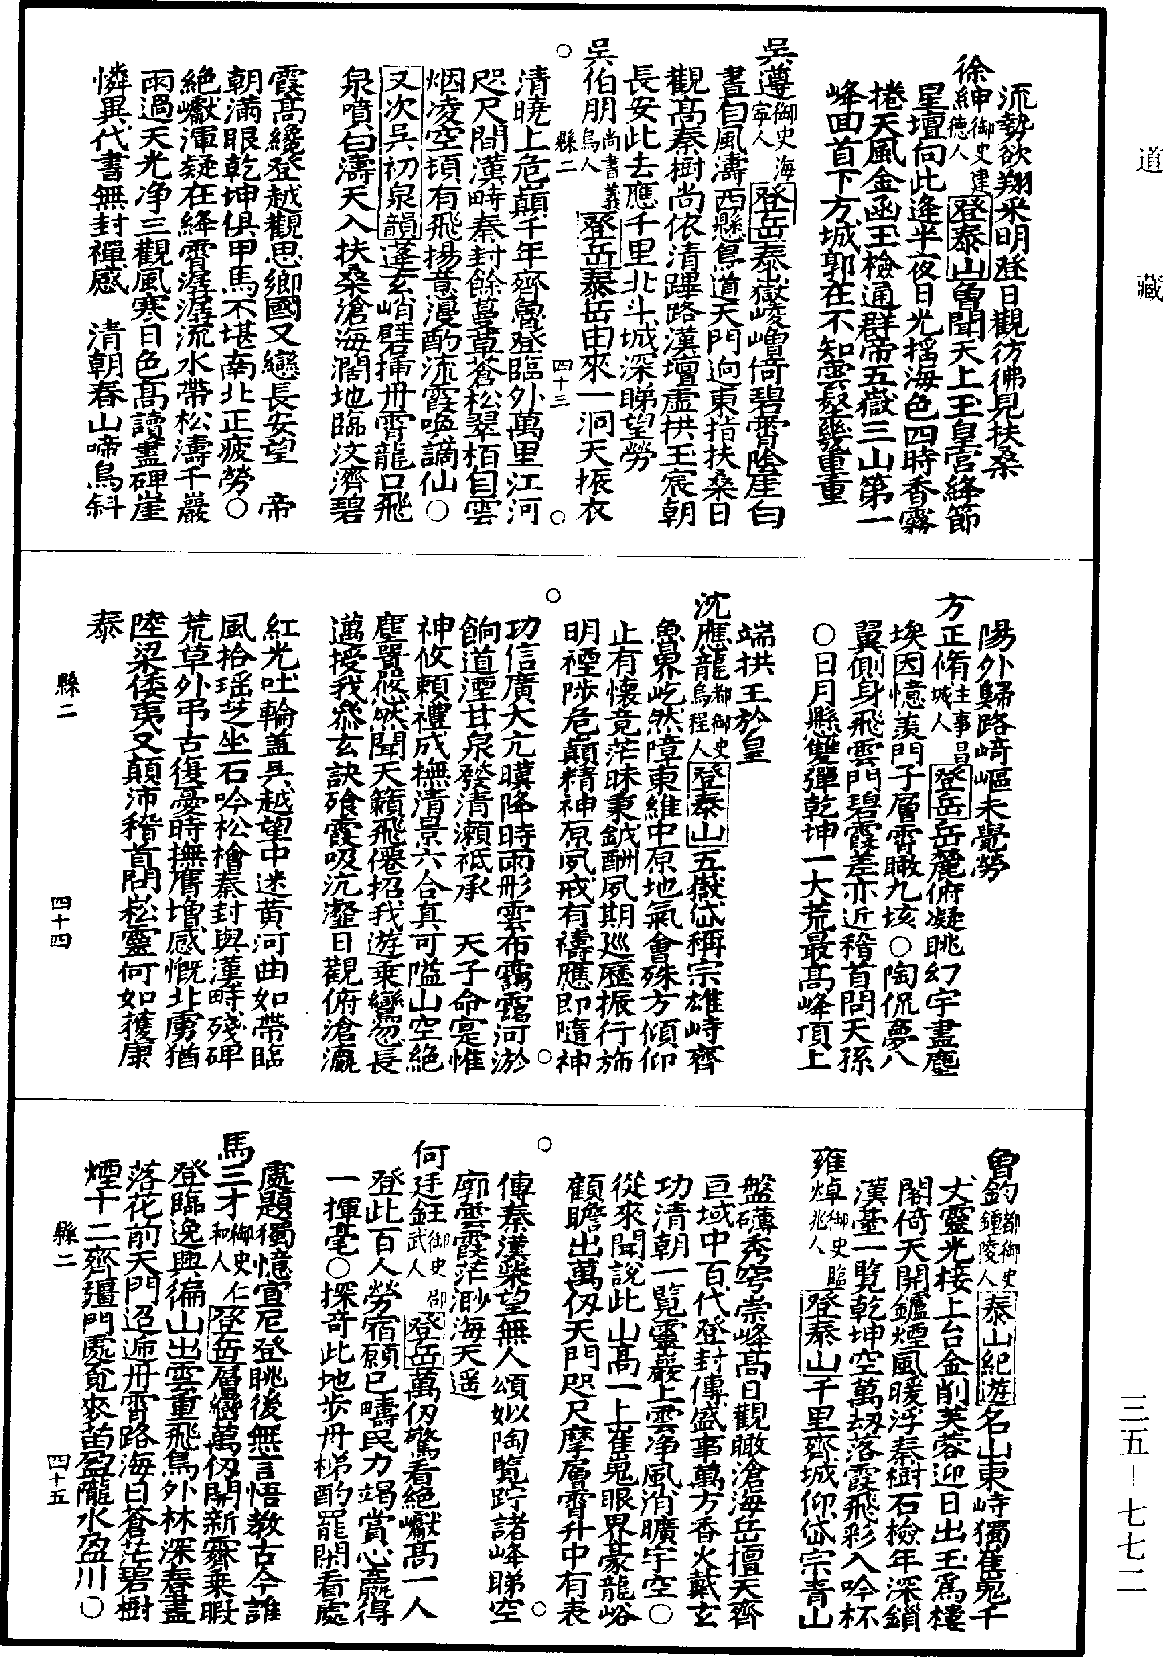 道藏
三五－七七二
流勢欲翔采明登日觀彷彿見扶桑
徐紳御史建德人登泰山魯聞天上玉皇宮絳節
星壇向此逄半夜日光搖海色四時香霧
捲天風金函玉檢通群帝五嶽三山第一
峰囬首下方城郭在不知雲壑幾重重
吳遵御史海寧人登岳泰嶽崚嶒倚碧霄陰崖白
晝自風濤西懸鳥道天門逈東指扶桑日
觀髙秦樹尚依清蹕路漢壇虛拱玉宸朝
長安此去應千里北斗城深睇望勞
吳伯朋尚書義烏人登岳泰岳由來一洞天振衣
縣二 四十三
清曉上危巔千年齊魯登臨外萬里江河
咫尺間漢畤秦封餘蔓草蒼松翠栢自雲
烟凌空頓有飛揚意漫酌流霞喚謫仙○
又次吳初泉韻蓬玄峭壁揷丹霄龍口飛
泉噴白濤天入扶桑滄海濶地臨汶濟碧
霞髙纔登越觀思鄉國又戀長安望 帝
朝滿眼乾坤俱甲馬不堪南北正疲勞○
絶巘渾疑在絳霄潺潺流水帶松濤千巖
雨過天光净三觀風寒日色髙讀盡碑崖
憐異代書無封禪感 清朝春山啼鳥斜
陽外歸路﨑嶇未覺勞
方正脩主事昌城人登岳岳麓俯凝眺幻宇盡塵
埃因憶羨門子層霄瞰九垓○陶侃夢八
翼側身飛雲門碧霞差亦近稽首問天孫
○日月懸雙彈乾坤一大荒最髙峰頂上
端拱玉於皇
沈應龍都御史烏程人登泰山五嶽岱稱宗雄峙齊
魯界屹然障東維中原地氣會殊方傾仰
止有懷竟茫昧秉鉞酬夙期廵歷振行斾
明禋陟危巔精神原夙戒有禱應即隨神
功信廣大亢暵降時雨形雲布靄靄河淤
餉道湮甘泉發清瀨祗承 天子命寔惟
神攸賴禮成撫清景六合真可隘山空絶
塵囂悠然聞天籟飛僊招我遊乘鸞忽長
邁授我叅玄訣飱霞吸沆瀣日觀俯滄瀛
紅光吐輪盖吴越望中迷黄河曲如帶臨
風拾瑶芝坐石吟松檜秦封與漢畤殘碑
荒草外弔古復憂時撫膺增感慨北虜猶
陸梁倭夷又顛沛稽首問嵩靈何如獲康
泰
縣二 四十四
曾鈞都御史鍾陵人泰山紀遊名山東峙獨崔嵬千
丈靈光接上台金削芙蓉迎日出玉爲樓
閣倚天開鑪煙風暖浮秦樹石檢年深鎖
漢臺一覧乾坤空萬刼落霞飛彩入吟杯
雍焯御史臨兆人登泰山千里齊城仰岱宗青山
盤礴秀穹崇峰髙日觀瞰滄海岳擅天齊
亘域中百代登封傳盛事萬方香火戴玄
功清朝一覧靈巖上雲净風消曠宇空○
從來聞說此山髙一上崔嵬眼界豪龍峪
顧瞻出萬仭天門咫尺摩層霄升中有表
傳秦漢柴望無人頌姒陶覧竚諸峰睇空
廓雲霞茫渺海天遥
何廷鈺御史御武人登岳萬仭驚看絶巘髙一人
登此百人勞宿願已疇民力竭賞心羸得
一揮毫○探竒此地步丹梯酌罷閑看處
處題獨憶宣尼登眺後無言悟教古今誰
馬三才御史仁和人登岳層巒萬仭開新霽乗暇
登臨逸興徧山出雲重飛鳥外林深春盡
落花前天門迢遞丹霄路海日蒼茫碧樹
煙十二齊疆門處覔來苗盈隴水盈川○
縣二 四十五